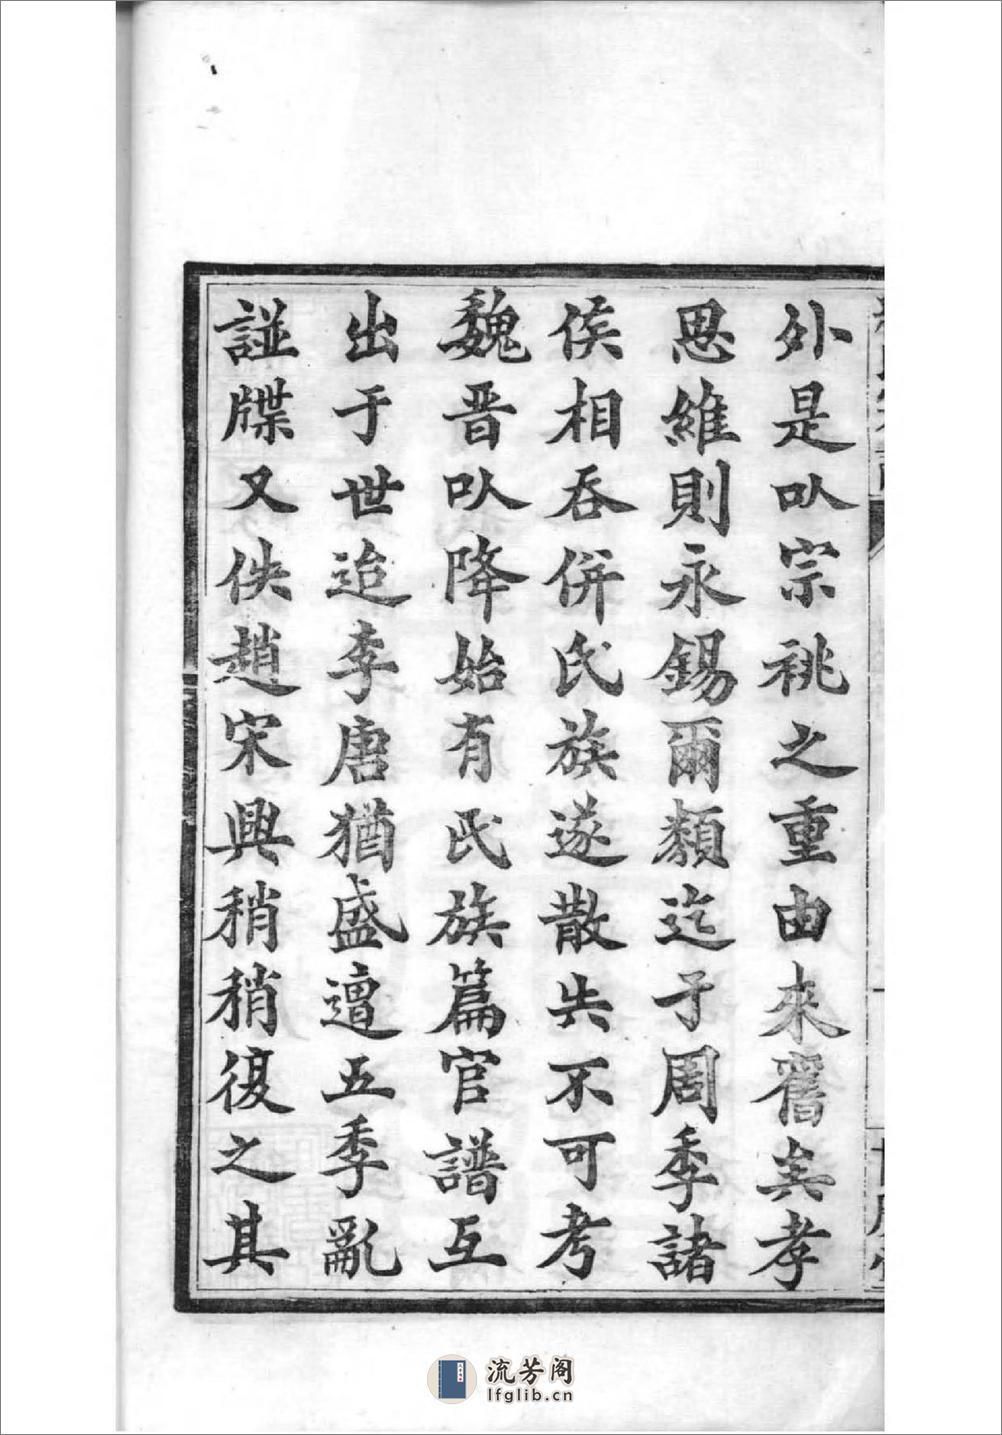 外是㕥宗祧之重由來舊矣孝
思維則永錫爾類迄于周季諸
侯相吞併氏族遂散失不可考
魏晋㕥降始有氏族篇官譜互
出于世迨李唐猶盛遭五季亂
諡牒又佚趙宋興稍稍復之其
流芳阁
lfglib.cn